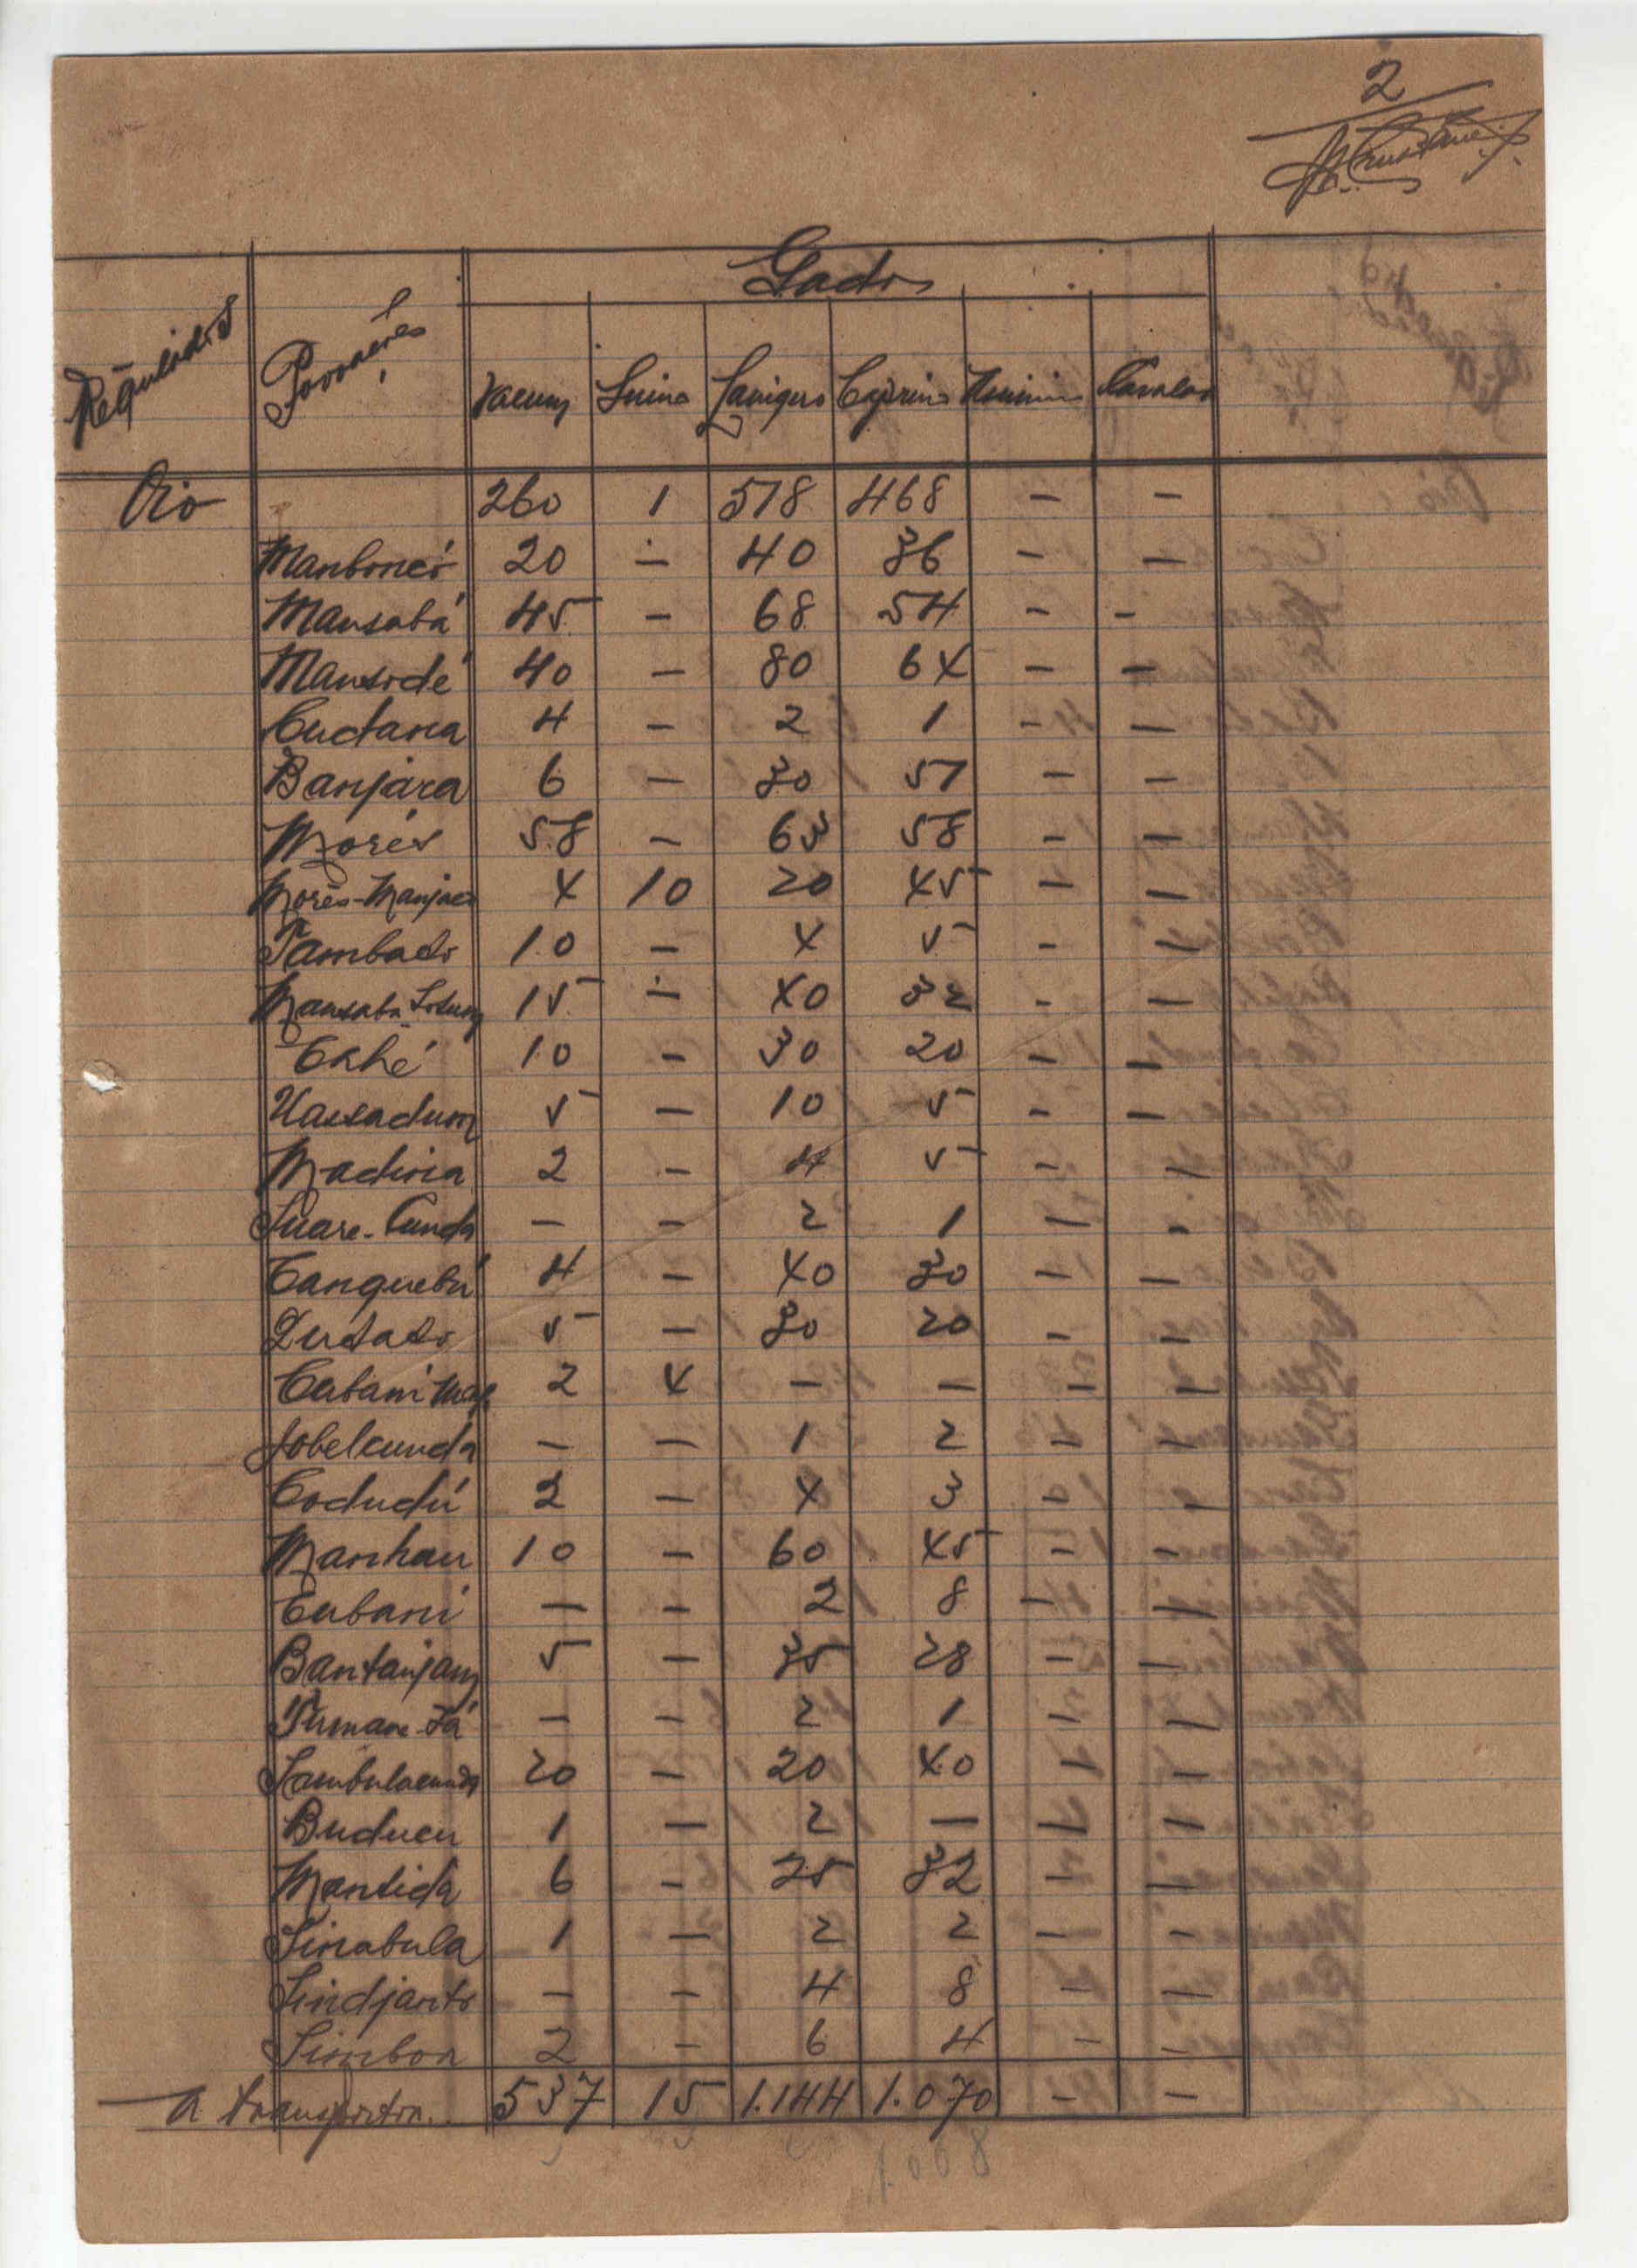 2
Gados
Regulados Povoações Vacum Suino Lanigero Caprino Asinino Cavalar
Oio 260 1 518 468 — —
Manboncó 20 — 40 36 — —
Mansabá 45 — 68 54 — —
Mansodé 40 — 80 64 — —
Cudana 4 — 2 1 — —
Banjara 6 — 30 51 — —
Morés 58 — 63 58 — —
Morés-Manjaco 4 10 20 45 — —
Tambato 10 — 4 5 — —
Mansaba 15 — 40 32 — —
10 — 30 20 — —
Uassadum 5 — 10 5 — —
Madina 2 — 4 5 — —
Suare-Cunda — — 2 1 — —
Tanquebú 4 — 40 30 — —
5 — 30 20 — —
Cubani 2 4 — — — —
Jobelcunda — — 1 2 — —
Codudú 2 — 4 3 — —
Manhau 10 — 60 45 — —
Cubani — — 2 8 — —
Bantanjam 5 — 35 28 — —
— — 2 1 — —
Sambulacunda 20 — 20 40 — —
Buducu 1 — 2 — — —
Mansida 6 — 25 32 — —
Sinabula 1 — 2 2 — —
Sindjanto — — 4 8 — —
Simbon 2 — 6 4 — —
A transportar 537 15 1.144 1.070 — —
1.068